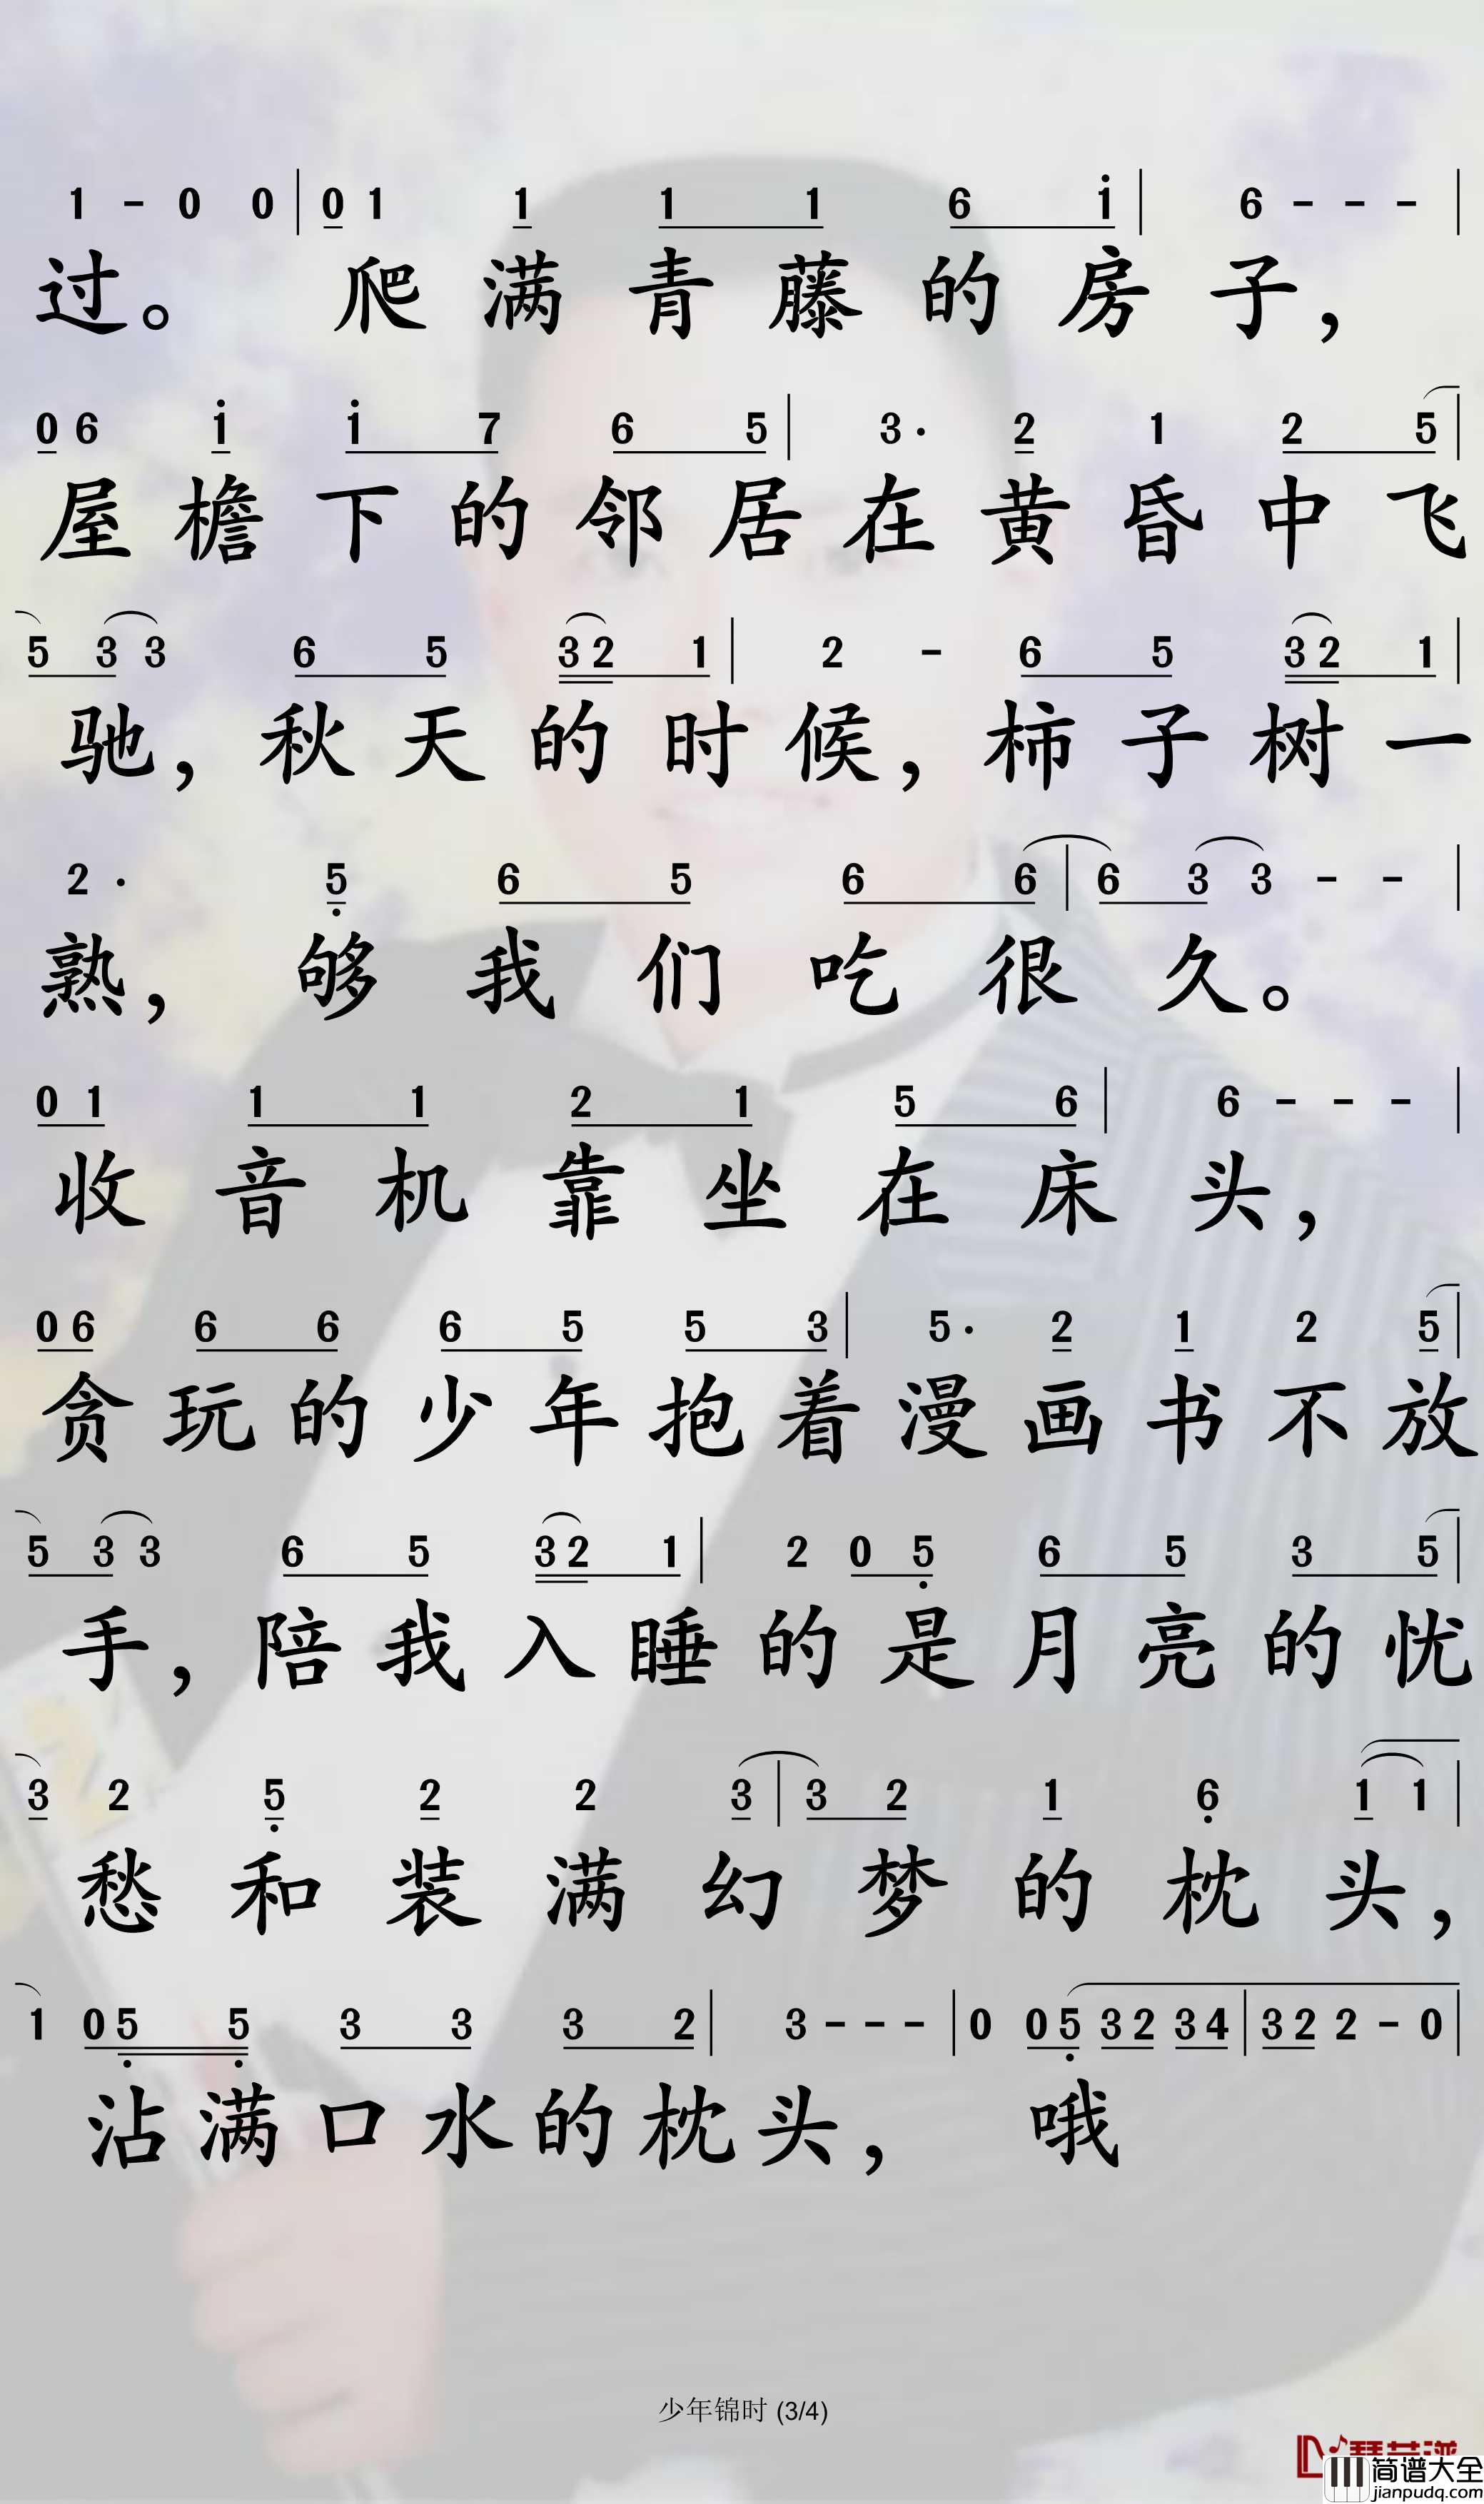 1 - 0 0 | 0 1 1 1 1 6 1 | 6 - - - |
过。 爬满青藤的房子，
0 6 1 1 7 6 5 | 3 · 2 1 2 5 |
屋檐下的邻居在黄昏中飞
5 3 3 6 5 3 2 1 | 2 - 6 5 3 2 1 |
驰，秋天的时候，柿子树一
2 · 5 6 5 6 6 | 6 3 3 - - |
熟，够我们吃很久。
0 1 1 1 2 1 5 6 | 6 - - - |
收音机靠坐在床头，
0 6 6 6 6 5 5 3 | 5 · 2 1 2 5 |
贪玩的少年抱着漫画书不放
5 3 3 6 5 3 2 1 | 2 0 5 6 5 3 5 |
手，陪我入睡的是月亮的忧
3 2 5 2 2 3 | 3 2 1 6 1 1 |
愁和装满幻梦的枕头，
1 0 5 5 3 3 3 2 | 3 - - - | 0 0 5 3 2 3 4 | 3 2 2 - 0 |
沾满口水的枕头， 哦
少年锦时 (3/4)
简谱大全
jianpudq.com